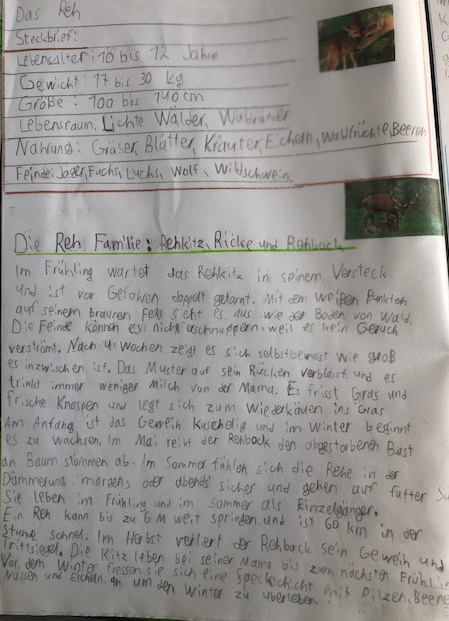 Das Reh
Steckbrief:
Lebensalter: 10 bis 12 Jahre
Gewicht: 17 bis 30 kg
Größe: 100 bis 140 cm
Lebensraum, Lichte Wälder, Waldränder
Nahrung: Gräser, Blätter, Kräuter, Eicheln, Waldfrüchte, Beeren
Feinde: Jäger, Fuchs, Luchs, Wolf, Wildschwein
Die Reh Familie: Rehkitz, Ricke und Rehback
Im Frühling wartet das Rehkitz in seinem Versteck
und ist vor Gefahren doppelt getarnt. Mit den weißen Punkten
auf seinem braunen Fell sieht es aus wie der Boden von Wald.
Die Feinde können es nicht erschnuppern, weil es kein Geruch
verströmt. Nach 4 Wochen zeigt es sich selbstbewusst wie groß
es inzwischen ist. Das Muster auf sein Rücken verblasst und es
trinkt immer weniger Milch von der Mama. Es frisst Gras und
frische Knospen und legt sich zum Wiederkäuen ins Gras
Am Anfang ist das Geweih kuschelig und im Winter beginnt
es zu wachsen. Im Mai reibt der Rehback den abgestorbenen Bast
an Baum stämmen ab. Im Sommer fühlen sich die Rehe in der
Dämmerung morgens oder abends sicher und gehen auf futter
Sie leben im Frühling und im sommer als Einzelgänger.
Ein Reh kann bis zu 6 M weit springen und ist 60 km in der
Stunde schnel. Im Herbst verliert der Rehback sein Geweih und
Trittsiegel. Die Kitz leben bei seiner Mama bis zum nächsten
Vor dem Winter fressen sie sich eine Speckschicht mit Pilzen, Beere
Nüssen und Eicheln an um den Winter zu überleben.